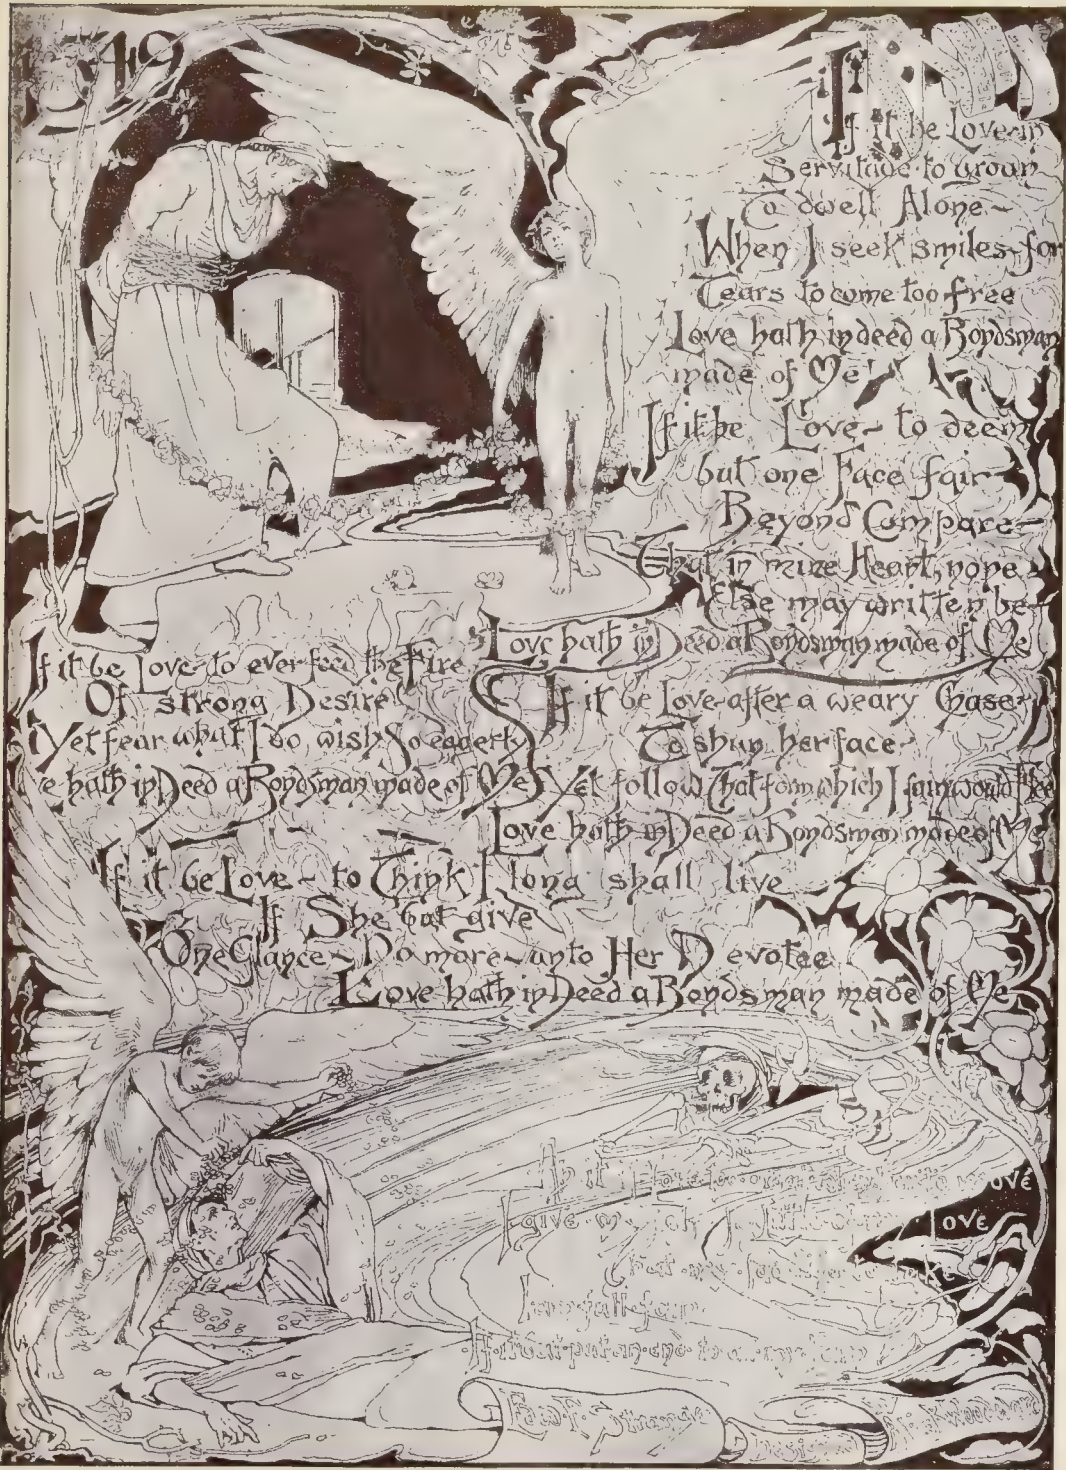 1549
If it be Love in
Servitude to groan
To dwell Alone
When I seek smiles for
Tears to come too free
Love hath indeed a Bondsman
made of Me!
If it be Love to deem
but one Face fair
Beyond Compare
That in mine Heart, none
Else may written be
Love hath inDeed a Bondsman made of Me
If it be Love to ever feed the Fire
Of strong Desire
Yet fear what I do wish So eagerly
hath inDeed a Bondsman made of Me
If it be Love after a weary Chase
To shun her face
Yet follow That form which I fain would flee
Love hath inDeed a Bondsman made of Me
If it be Love to Think I long shall live
If She but give
One Glance No more unto Her Devotee
Love hath inDeed a Bondsman made of Me
If it
I give my Love
That may
I am full fain
If it but put an end to all my
Strange
Design
Woodward